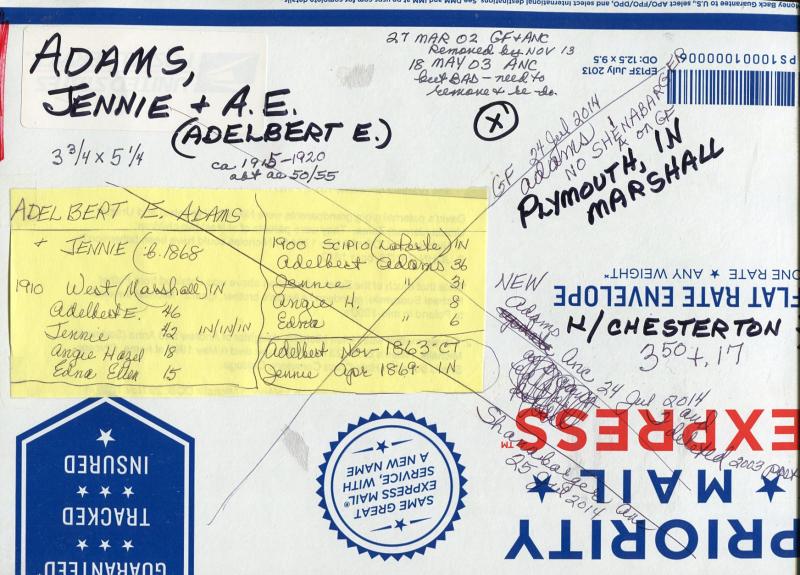 ADAMS,
JENNIE + A.E.
(ADELBERT E.)
3 3/4 x 5 1/4
ca 1915-1920
abt ae 50/55
27 MAR 02 GF + ANC
Removed by NOV 13
18 MAY 03 ANC
but BAD - need to
remove & re-do.
X
GF 24 Jul 2014
adams
NO SHENABARGER
on GF
PLYMOUTH, IN
MARSHALL
ADELBERT E. ADAMS
+ JENNIE (b. 1868
1910 West (Marshall) IN
Adelbert E. 46
Jennie 42 IN/IN/IN
Angie Hazel 18
Edna Ellen 15
1900 SCIPIO (LaPorte) IN
Adelbert Adams 36
Jennie " 31
Angie H. 8
Edna " 6
Adelbert Nov 1863 CT
Jennie Apr 1869 IN
NEW
adams
Anc 24 Jul 2014
and
deleted 2003 post
Shanabarger Anc
25 Jul 2014
W/CHESTERTON
3.50 +.17
PS10001000006
EP13F July 2013
OD: 12.5 x 9.5
ONE RATE ★ ANY WEIGHT*
FLAT RATE ENVELOPE
PRIORITY
★ MAIL ★
EXPRESS™
SAME GREAT
EXPRESS MAIL®
SERVICE, WITH
A NEW NAME
GUARANTEED
TRACKED
INSURED